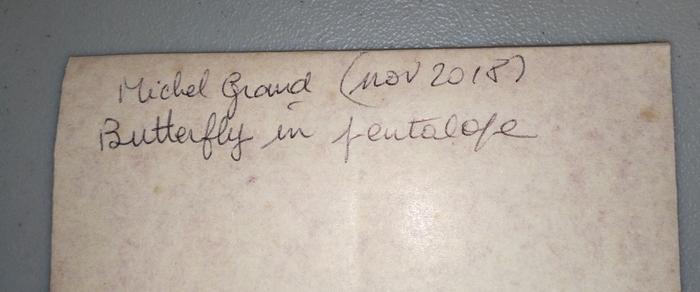 Michel Grand (nov 2018)
Butterfly in pentalope